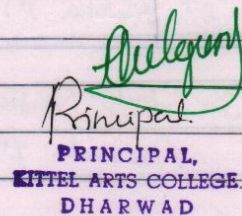 Principal.
PRINCIPAL,
KITTEL ARTS COLLEGE
DHARWAD